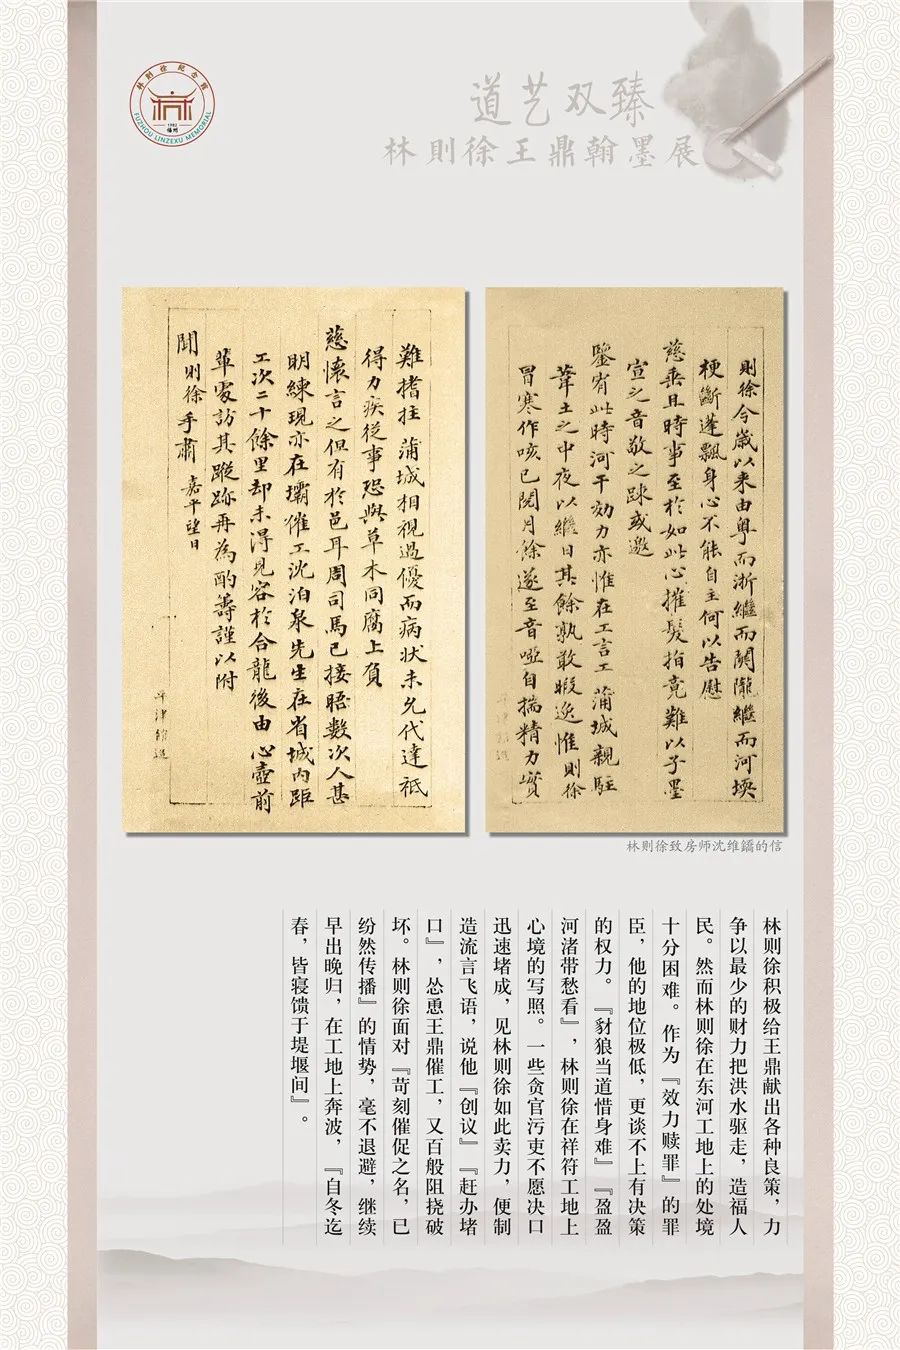 林則徐紀念館
1982
福州
FUZHOU LINZEXU MEMORIAL
道艺双臻
林則徐王鼎翰墨展
則徐今歲以来由粵而浙繼而關隴繼而河壖
梗斷蓬飄身心不能自主何以告慰
慈垂且時事至於如此心摧髮指竟難以子墨
宣之音敬之踈或邀
鑒宥此時河干効力亦惟在工言工 蒲城親駐
葦土之中夜以繼日其餘孰敢暇逸惟則徐
冒寒作咳已閱月餘遂至音啞自揣精力實
難搘拄 蒲城相視過優而病状未允代達祇
得力疾從事恐與草木同腐上負
慈懷言之但有於邑耳周司馬已接晤數次人甚
明練現亦在壩催工沈泊泉先生在省城内距
工次二十餘里却未得見容於合龍後由 心壺前
輩處訪其蹤跡再為酌籌謹以附
聞 則徐手肅 嘉平望日
林则徐致房师沈维鐈的信
林则徐积极给王鼎献出各种良策，力
争以最少的财力把洪水驱走，造福人
民。然而林则徐在东河工地上的处境
十分困难。作为『效力赎罪』的罪
臣，他的地位极低，更谈不上有决策
的权力。『豺狼当道惜身难』『盈盈
河渚带愁看』，林则徐在祥符工地上
心境的写照。一些贪官污吏不愿决口
迅速堵成，见林则徐如此卖力，便制
造流言飞语，说他『创议』『赶办堵
口』，怂恿王鼎催工，又百般阻挠破
坏。林则徐面对『苛刻催促之名，已
纷然传播』的情势，毫不退避，继续
早出晚归，在工地上奔波，『自冬迄
春，皆寝馈于堤堰间』。